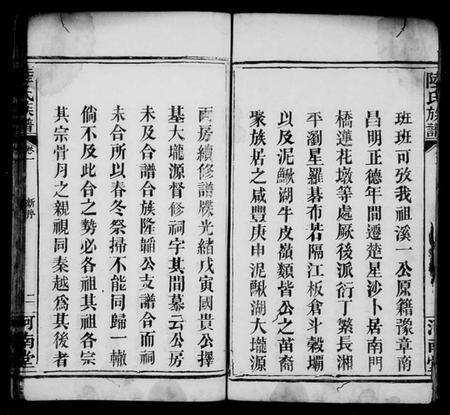 班班可攷我祖溪一公原籍豫章南
昌明正德年間遷楚星沙卜居南門
橋蓮花墩等處厥後派衍丁繁長湘
平瀏星羅碁布若隔江板倉斗穀塅
以及泥鰍湖牛皮嶺類皆公之苗裔
聚族居之咸豐庚申泥鰍湖大壠源
兩房續修譜牒光緒戊寅國貴公擇
基大壠源督修祠宇其間慕云公房
未及合譜合族隆婦公支譜合而祠
未合所以春冬祭掃不能同歸一轍
倘不及此合之勢必各祖其祖各宗
其宗骨月之親視同秦越為其後者
陸氏族譜
卷一
新序
二
河南堂
陸氏族譜
河南堂